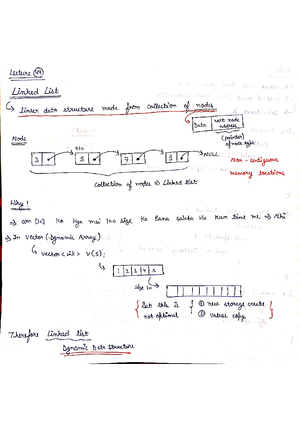 Lecture (44)
Linked List
↳ linear data structure made from collection of nodes
Data | next node address
(pointer) of node type
Node
710
3 → 5 → 7 → 9 → NULL
Non-contiguous memory locations
Collection of nodes ⇒ Linked list
Why ?
⇒ arr [10] Ko kya mai 100 size Ka bana sakta hu Run time me → Nhi
⇒ In Vector (Dynamic Array)
↳ vector<int> V(5);
1 2 3 4 5
size 10
{ But this is not optimal
{ ① new storage create
② values copy }
Therefore Linked list
Dynamic Data Structure